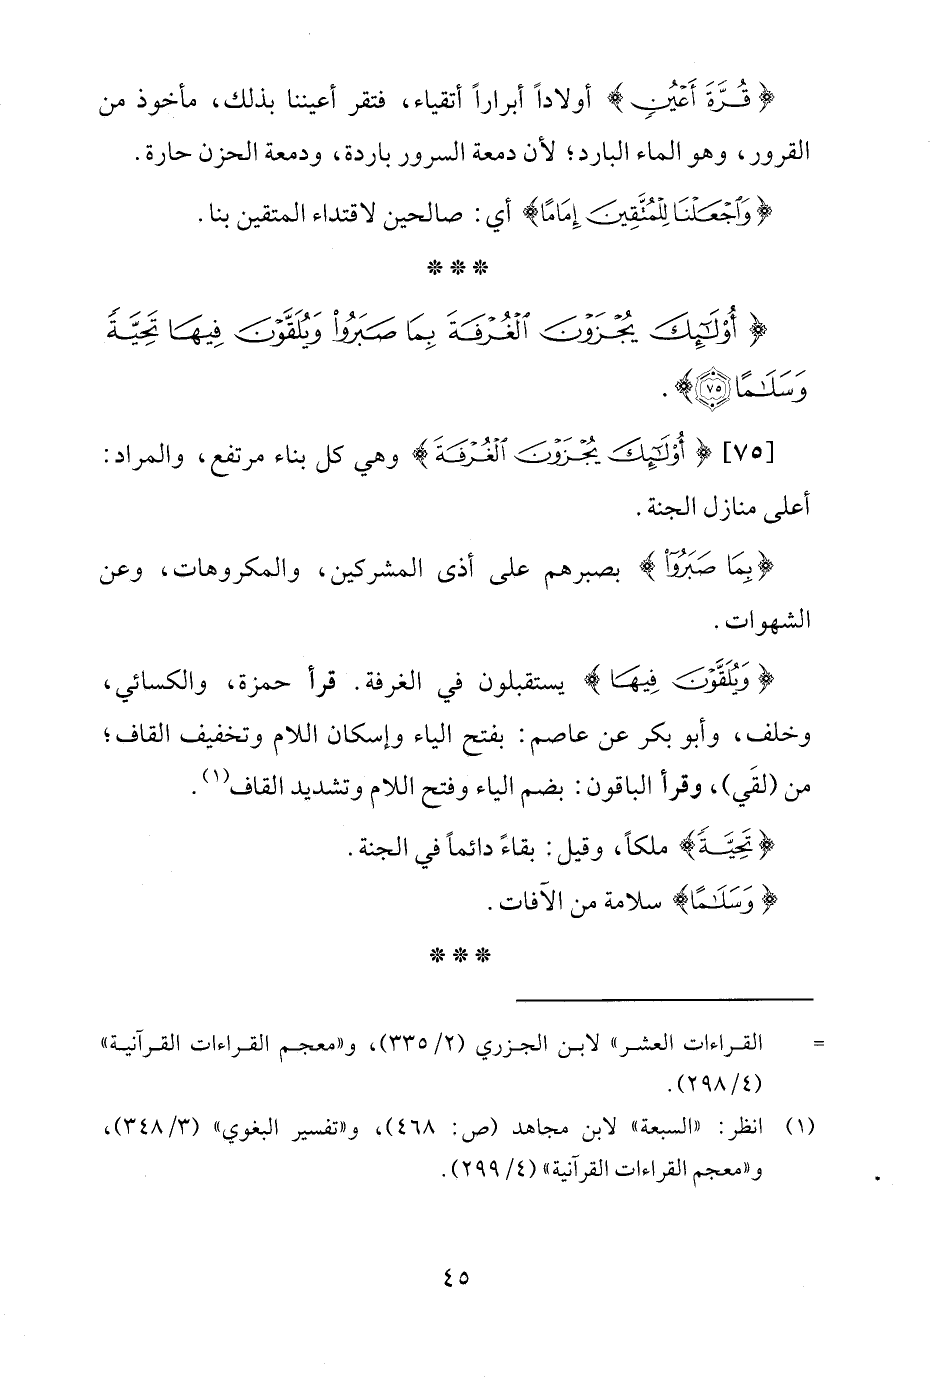 ﴿قُرَّةَ أَعْيُنٍ﴾ أولاداً أبراراً أتقياء، فتقر أعيننا بذلك، مأخوذ من
القرور، وهو الماء البارد؛ لأن دمعة السرور باردة، ودمعة الحزن حارة.
﴿وَٱجْعَلْنَا لِلْمُتَّقِينَ إِمَامًا﴾ أي: صالحين لاقتداء المتقين بنا.
***
﴿أُوْلَٰٓئِكَ يُجْزَوْنَ ٱلْغُرْفَةَ بِمَا صَبَرُواْ وَيُلَقَّوْنَ فِيهَا تَحِيَّةً
وَسَلَٰمًا ٧٥﴾.
[٧٥] ﴿أُوْلَٰٓئِكَ يُجْزَوْنَ ٱلْغُرْفَةَ﴾ وهي كل بناء مرتفع، والمراد:
أعلى منازل الجنة.
﴿بِمَا صَبَرُواْ﴾ بصبرهم على أذى المشركين، والمكروهات، وعن
الشهوات.
﴿وَيُلَقَّوْنَ فِيهَا﴾ يستقبلون في الغرفة. قرأ حمزة، والكسائي،
وخلف، وأبو بكر عن عاصم: بفتح الياء وإسكان اللام وتخفيف القاف؛
من (لقَي)، وقرأ الباقون: بضم الياء وفتح اللام وتشديد القاف(١).
﴿تَحِيَّةً﴾ ملكاً، وقيل: بقاءً دائماً في الجنة.
﴿وَسَلَٰمًا﴾ سلامة من الآفات.
***
= القراءات العشر» لابن الجزري (٢/ ٣٣٥)، و«معجم القراءات القرآنية»
(٤/ ٢٩٨).
(١) انظر: «السبعة» لابن مجاهد (ص: ٤٦٨)، و«تفسير البغوي» (٣/ ٣٤٨)،
و«معجم القراءات القرآنية» (٤/ ٢٩٩).
٤٥